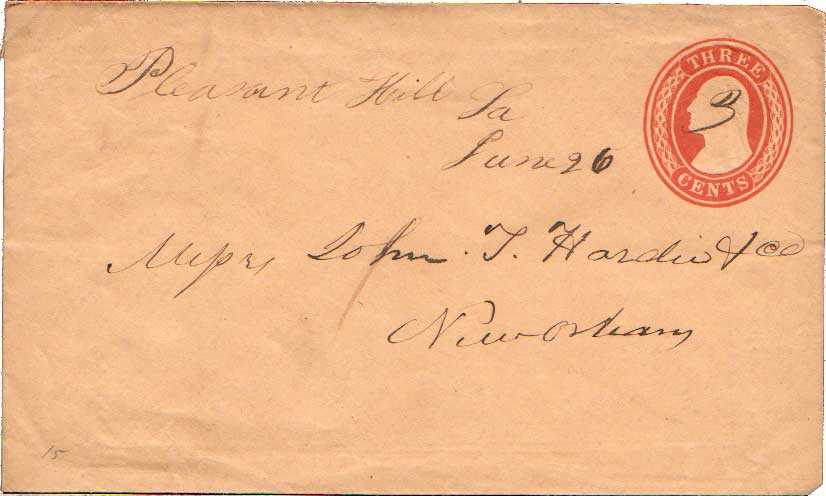 THREE
3
CENTS
Pleasant Hill La
June 26
Messrs John. T. Hardie & Co
New Orleans
15